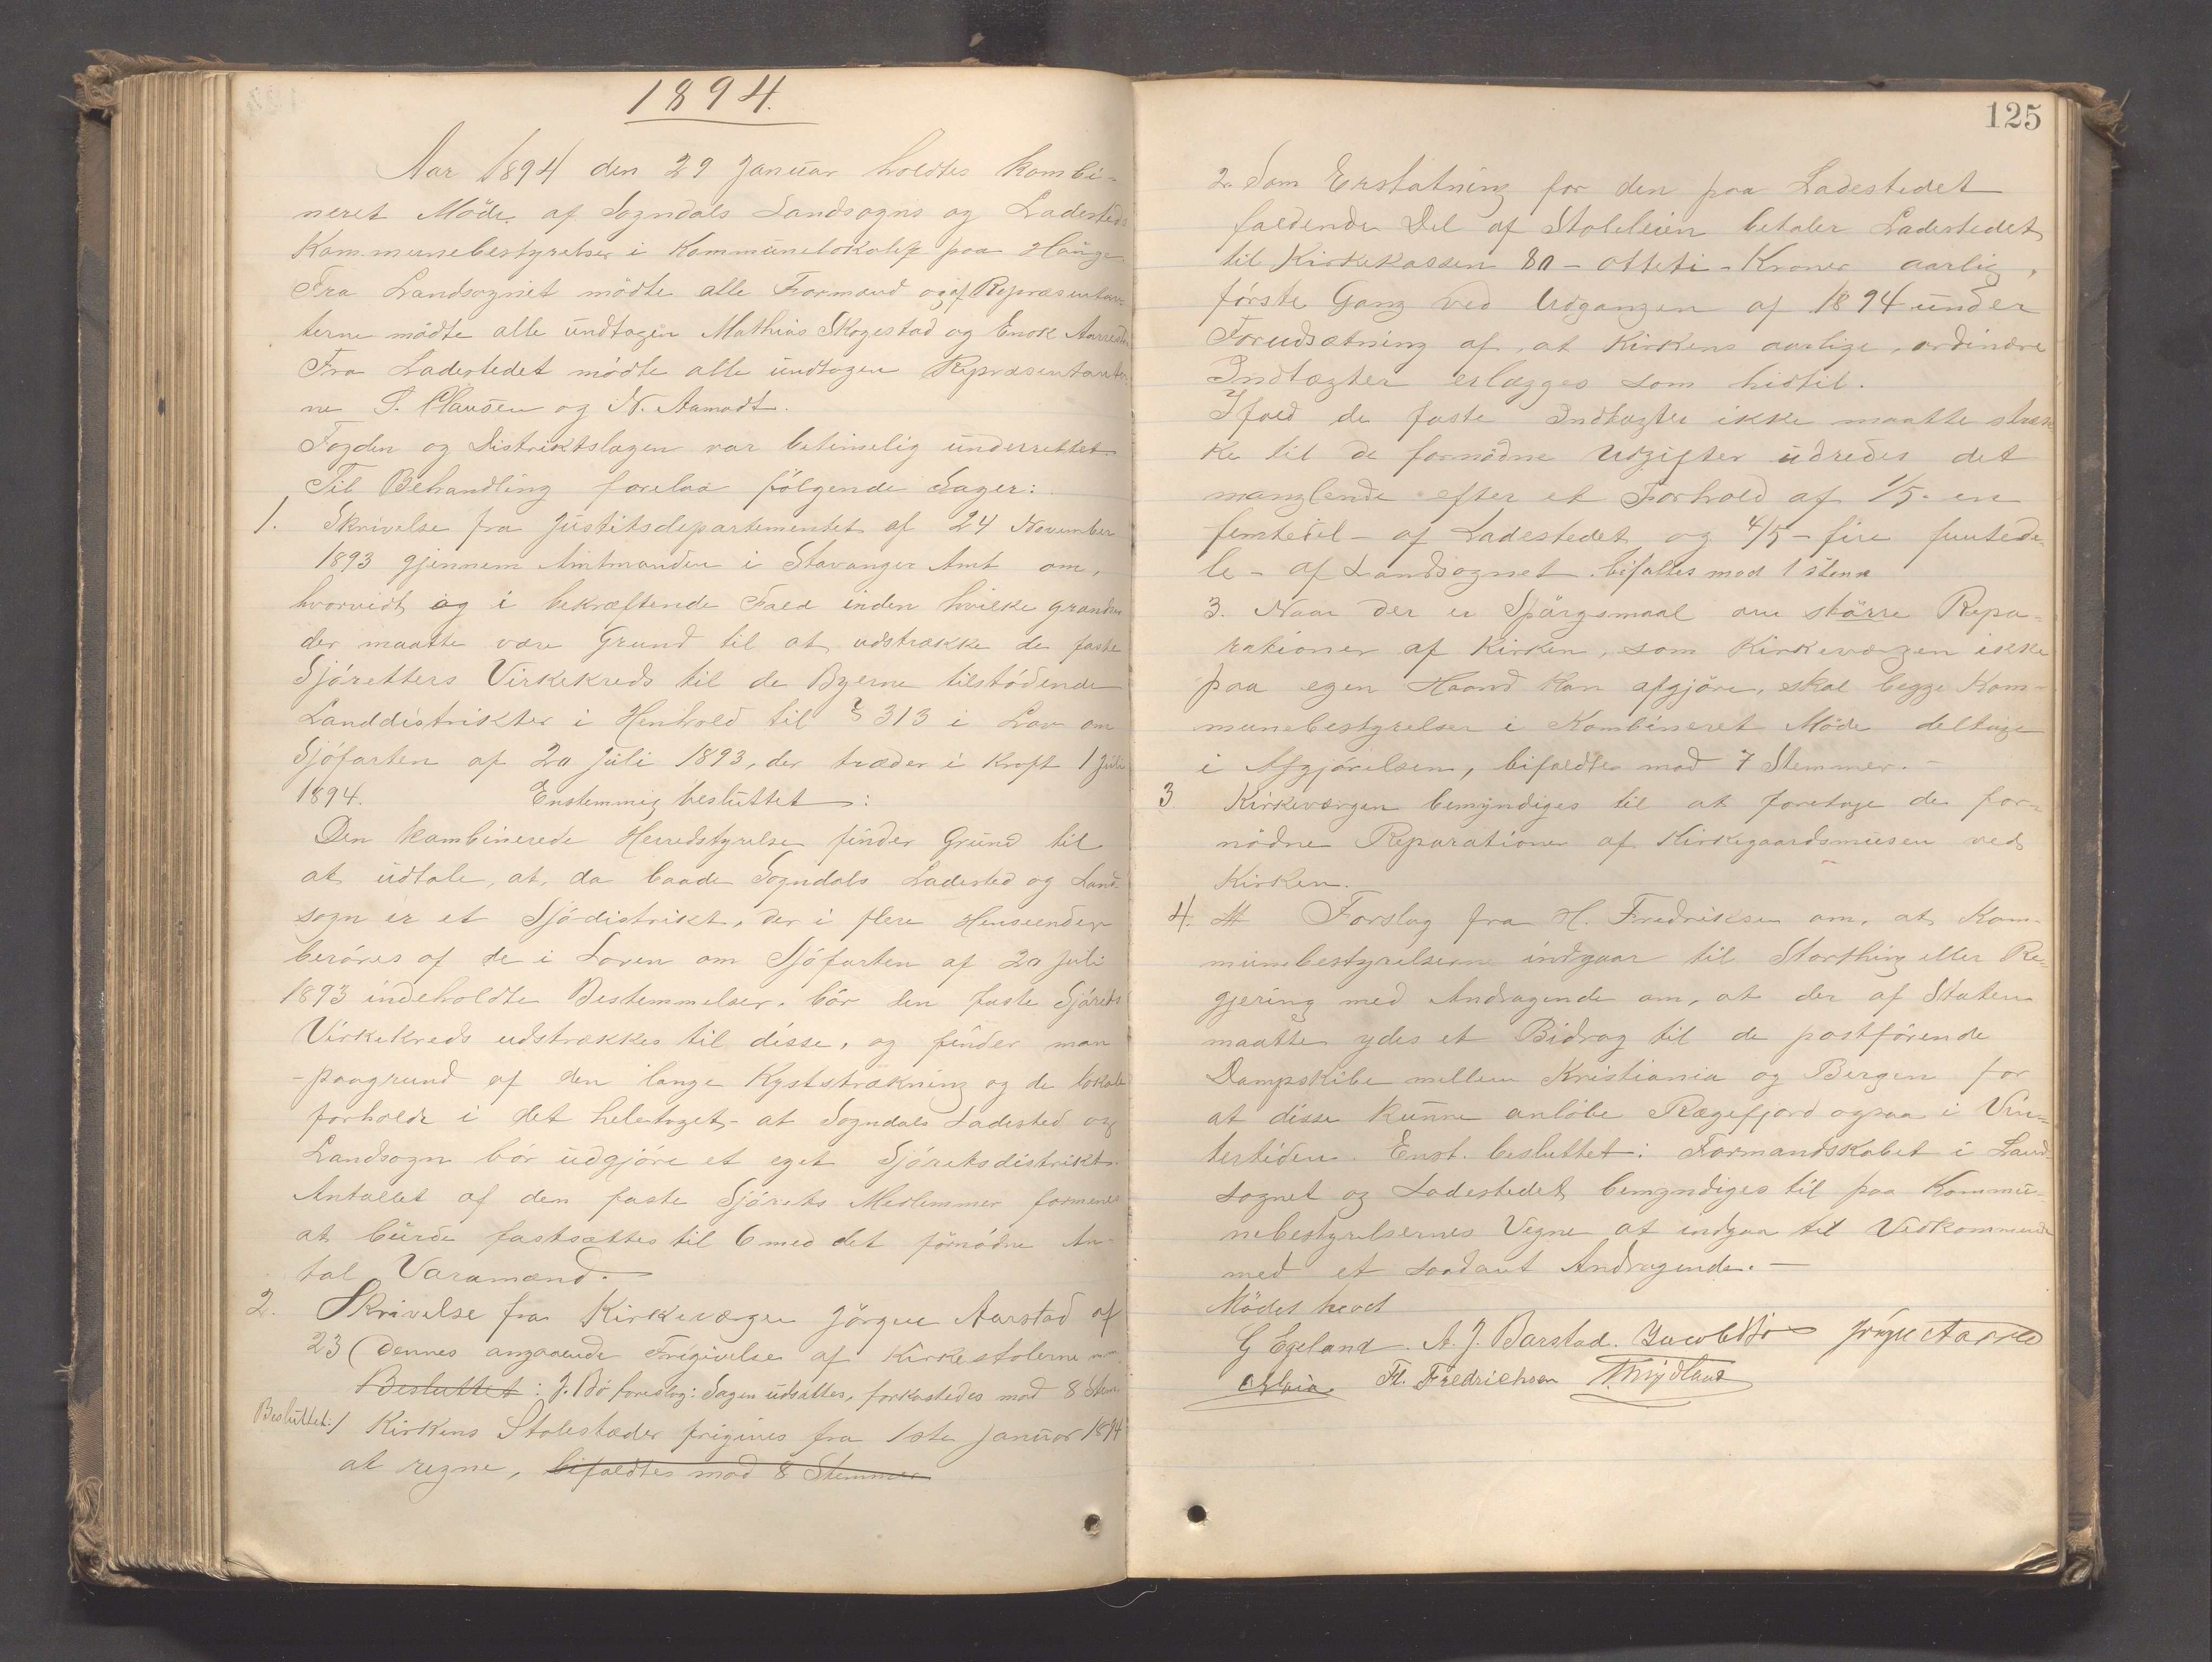 1894.
Aar 1894 den 29 Januar holdtes kombi-
neret Möde af Sogndals Landsogns og Ladesteds
Kommunebestyrelser i Kommunelokalet paa Hauge
Fra Landsognet mödte alle Formænd og af Repræsentan-
terne mödte alle undtagen Mathias Skogestad og Enok Aarrestad
Fra Ladestedet mödte alle undtagen Repræsentanter-
ne S. Clausen og N. Aamodt.
Fogden og Distriktslægen var betimelig underrettet
Til Behandling forelaa fölgende Sager:
1. Skrivelse fra Justitsdepartementet af 24 November
1893 gjennem Amtmanden i Stavanger Amt om,
hvorvidt og i bekræftende Fald inden hvilke grændser
der maatte være Grund til at udstrække de faste
Sjöretters Virkekreds til de Byerne tilstödende
Landdistrikter i Henhold til § 313 i Lov om
Sjöfarten af 20 Juli 1893, der træder i Kraft 1 Juli
1894. Enstemmig besluttet:
Den kombinerede Herredstyrelse finder Grund til
at udtale, at, da baade Sogndals Ladested og Land-
sogn er et Sjödistrikt, der i flere Henseender
beröres af de i Loven om Sjöfarten af 20 Juli
1893 indeholdte Bestemmelser, bör den faste Sjörets
Virkekreds udstrækkes til disse, og finder man
- paagrund af den lange Kyststrækning og de lokale
forholde i det heletaget - at Sogndals Ladested og
Landsogn bör udgjöre et eget Sjöretsdistrikt.
Antallet af den faste Sjörets Medlemmer formenes
at burde fastsættes til 6 med det fornödne An-
tal Varamænd.
2. Skrivelse fra Kirkeværgen Jörgen Aarstad af
23 dennes angaaende Frigivelse af Kirkestolerne m.m.
Besluttet: J. Bö foreslog: Sagen udsættes, forkastedes mod 8 Stem.
Besluttet: 1 Kirkens Stolestæder frigives fra 1ste Januar 1894
at regne, bifaldtes mod 8 Stemmer
125
2. Som Erstatning for den paa Ladestedet
faldende Del af Stoleleien betaler Ladestedet
til Kirkekassen 80 - otteti - Kroner aarlig,
förste Gang ved Udgangen af 1894 under
Forudsætning af, at Kirkens aarlige, ordinære
Indtægter erlægges som hidtil.
Ifald de faste Indtægter ikke maatte stræk-
ke til de fornödne Udgifter udredes det
manglende efter et Forhold af 1/5 - en
femtedel - af Ladestedet og 4/5 - fire femtede-
le - af Landsognet. bifaltes mod 1 stemme
3. Naar der er Spörgsmaal om större Repa-
rationer af Kirken, som Kirkeværgen ikke
paa egen Haand kan afgjöre, skal begge Kom-
munebestyrelser i Kombineret Möde deltage
i Afgjörelsen, bifaldtes mod 7 Stemmer. -
3 Kirkeværgen bemyndiges til at foretage de for-
nödne Reparationer af Kirkegaardsmuren ved
Kirken.
4. Forslag fra H. Fredriksen om, at Kom-
munebestyrelserne indgaar til Storthing eller Re-
gjering med Andragende om, at der af Staten
maatte ydes et Bidrag til de postförende
Dampskibe mellem Kristiania og Bergen for
at disse kunne anlöbe Rægefjord ogsaa i Vin-
tertiden. Enst. besluttet: Formandskabet i Land-
sognet og Ladestedet bemyndiges til paa Kommu-
nebestyrelsernes Vegne at indgaa til Vedkommende
med et saadant Andragende. -
Mödet hevet
G Egeland. A. J. Barstad. Jörgen Aarstad
Fr. Fredrichsen T. Mydland